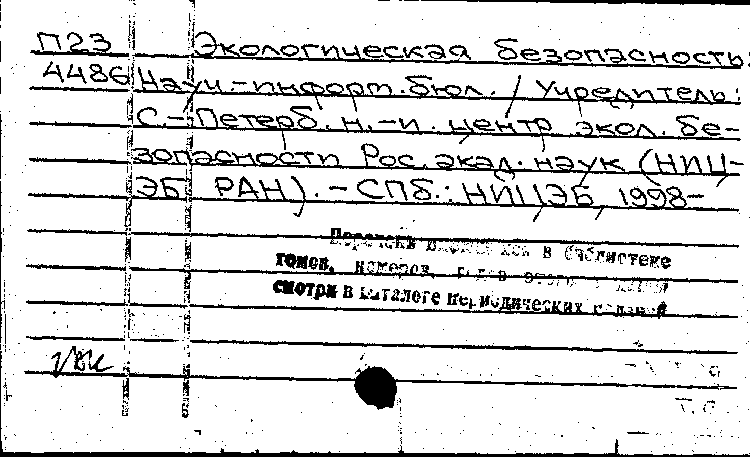 П23 Экологическая безопасность:
4486 Науч.-информ. бюл. / Учредитель:
С.-Петерб. н.-и. центр экол. бе-
зопасности Рос. акад. наук (НИЦ-
ЭБ РАН). - СПб.: НИЦЭБ, 1998-
Перечень имеющихся в библиотеке
томов, номеров, годов этого издания
смотри в каталоге периодических изданий